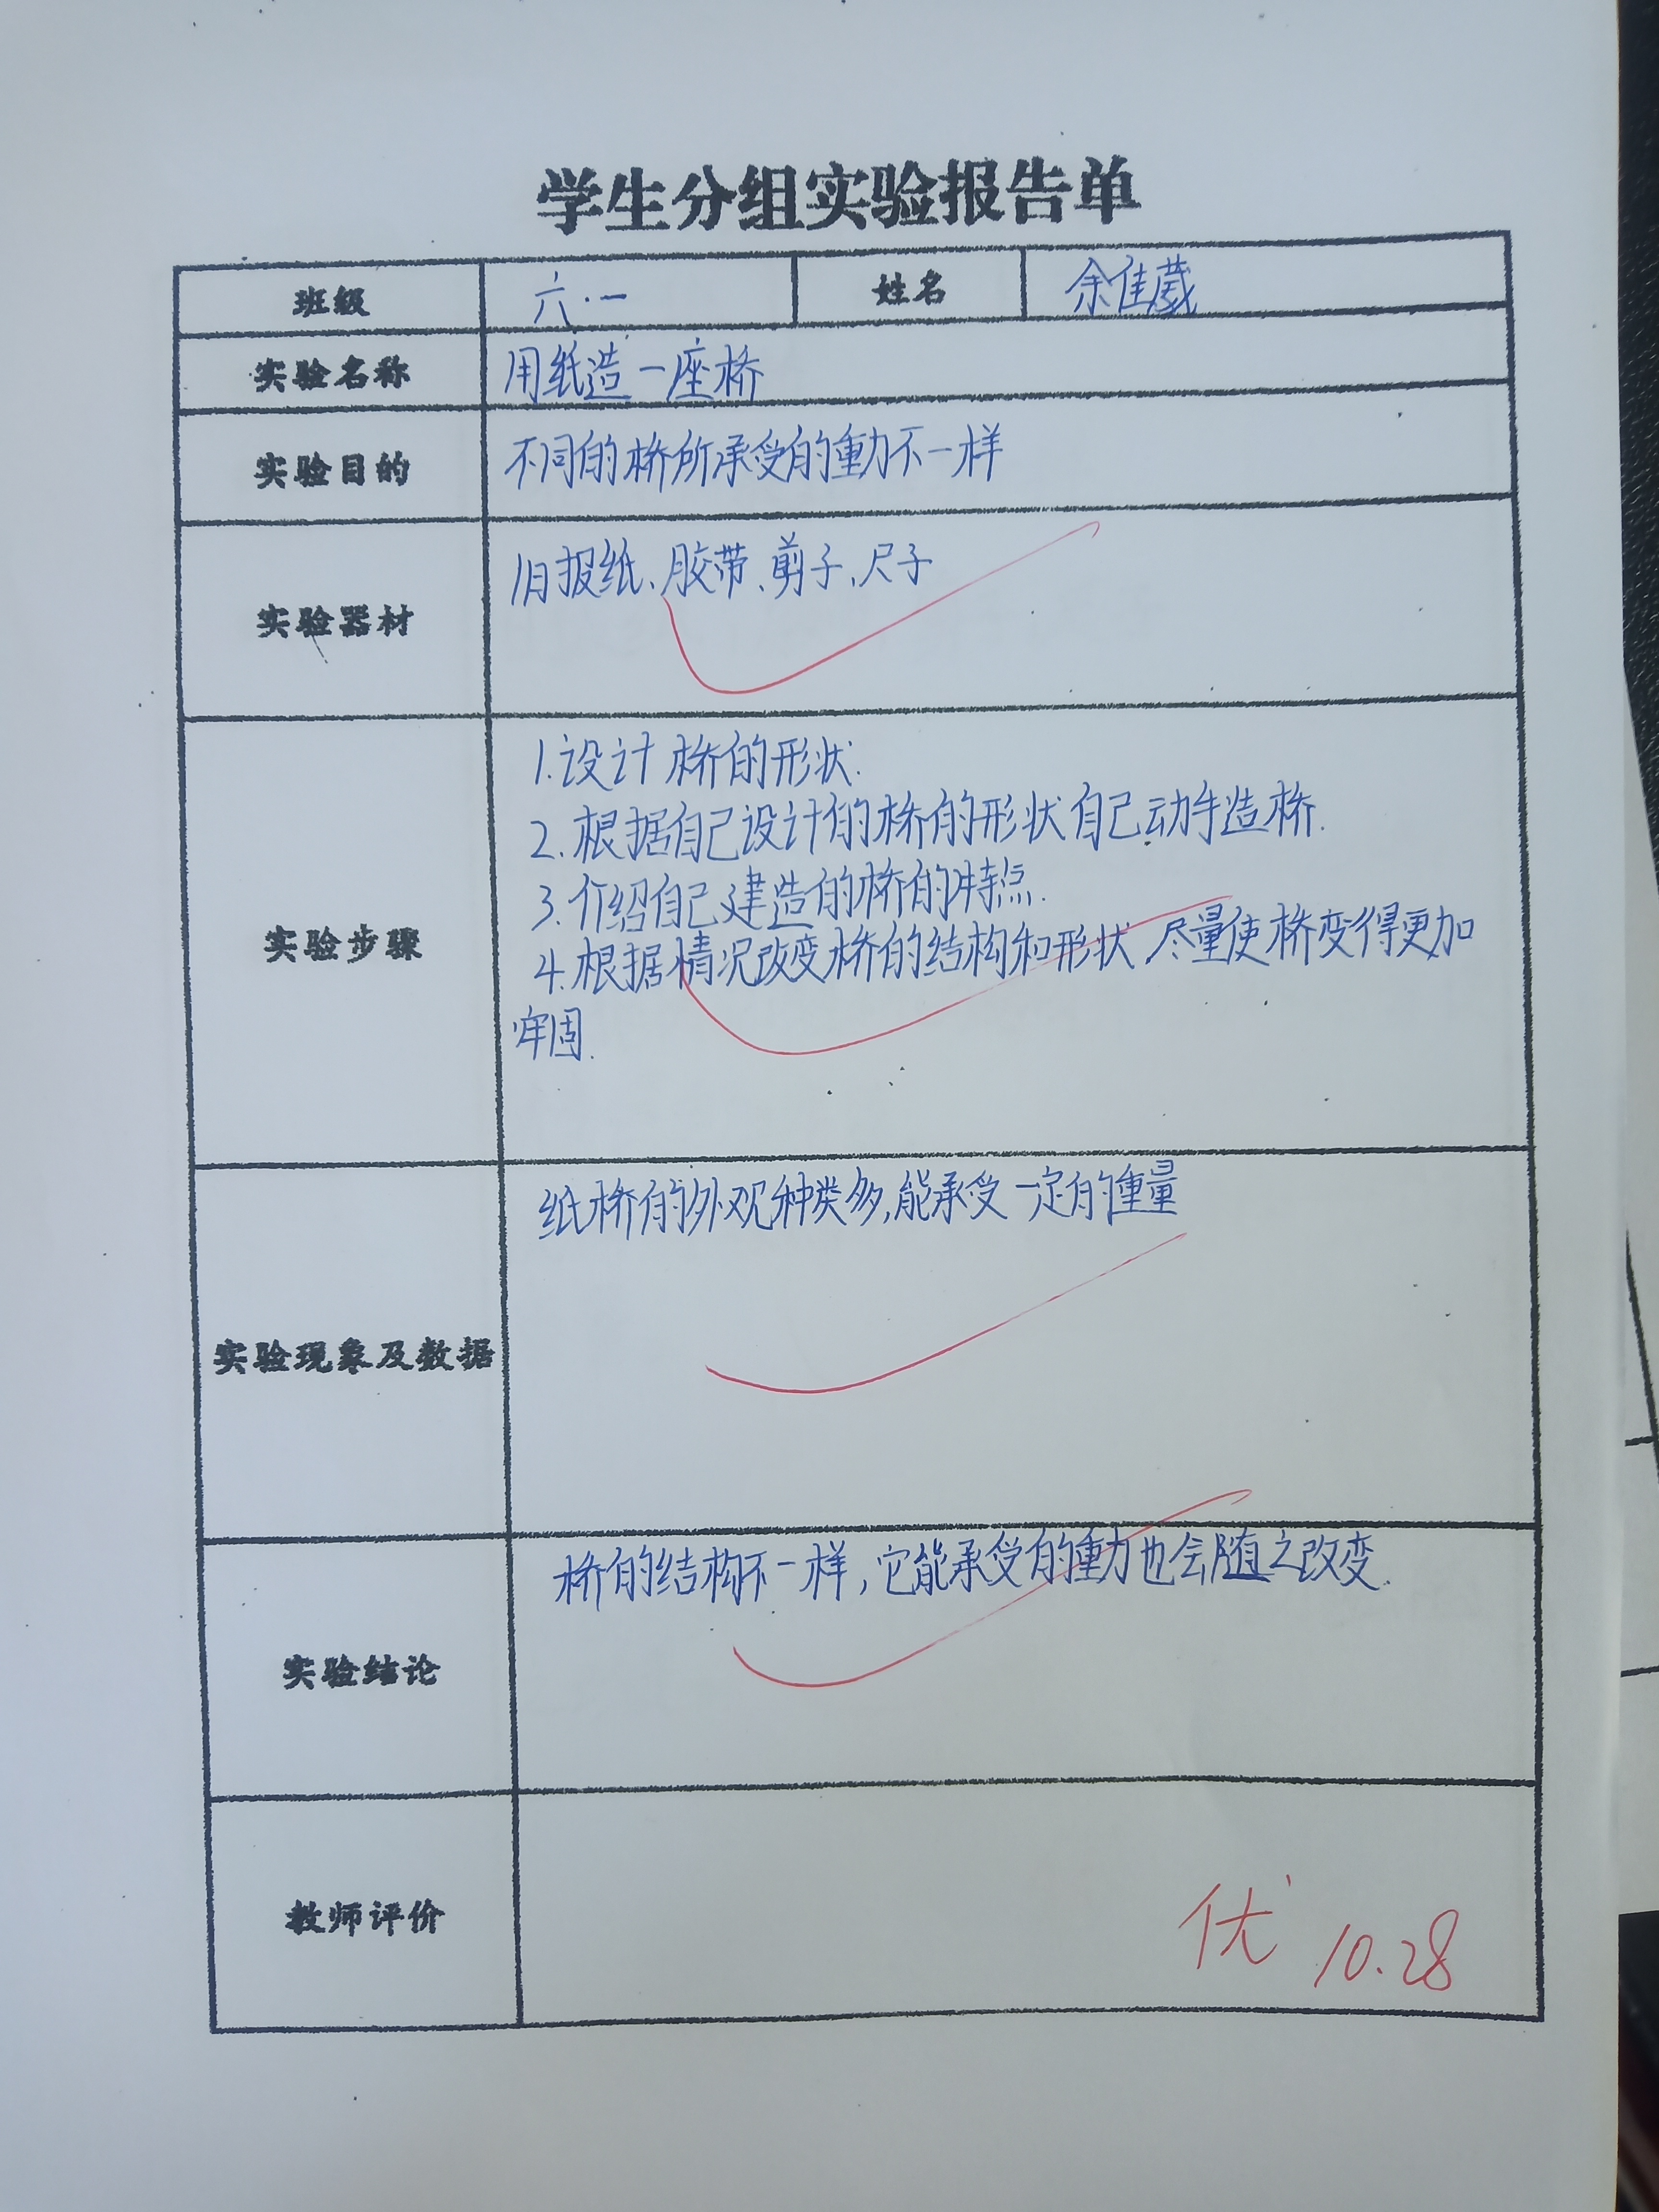 学生分组实验报告单
班级 六.一 姓名 余佳葳
实验名称 用纸造一座桥
实验目的 不同的桥所承受的重力不一样
实验器材 旧报纸、胶带、剪子、尺子
实验步骤
1.设计桥的形状.
2.根据自己设计的桥的形状自己动手造桥.
3.介绍自己建造的桥的特点.
4.根据情况改变桥的结构和形状 尽量使桥变得更加
牢固.
实验现象及数据 纸桥的外观种类多,能承受一定的重量
实验结论 桥的结构不一样,它能承受的重力也会随之改变.
教师评价 优 10.28